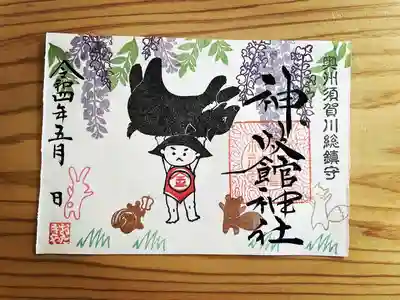 奥州須賀川総鎮守
神炊館神社
金
令和四年五月 日